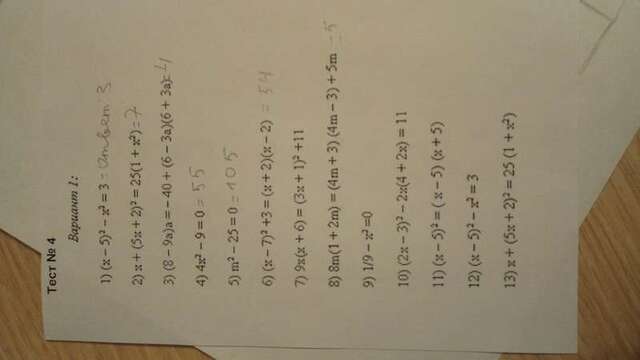 Тест № 4
Вариант 1:
1) (x – 5)² – x² = 3 = ответ 3
2) x + (5x + 2)² = 25(1 + x²) = 7
3) (8 – 9a)a = – 40 + (6 – 3a)(6 + 3a) = 4
4) 4x² – 9 = 0 = 55
5) m² – 25 = 0 = 105
6) (x – 7)² +3 = (x + 2)(x – 2) = 54
7) 9x(x + 6) = (3x + 1)² +11
8) 8m(1 + 2m) = (4m + 3) (4m – 3) + 5m = 5
9) 1/9 – x² =0
10) (2x – 3)² – 2x(4 + 2x) = 11
11) (x – 5)² = ( x – 5) (x + 5)
12) (x – 5)² – x² = 3
13) x + (5x + 2)² = 25 (1 + x²)